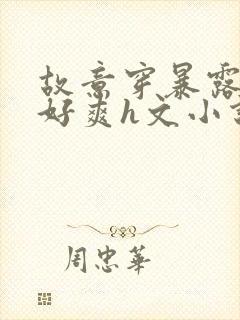 故意穿暴露
好爽h文小
周忠華